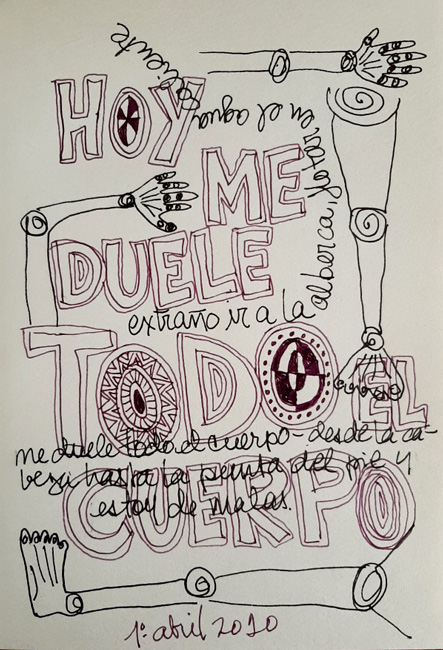 HOY
ME
DUELE
extraño ir a la alberca, flotar, en el agua caliente
TODO EL
me duele todo el cuerpo - desde la ca-
beza hasta la punta del pie y
estoy de malas.
CUERPO
1º abril 2020